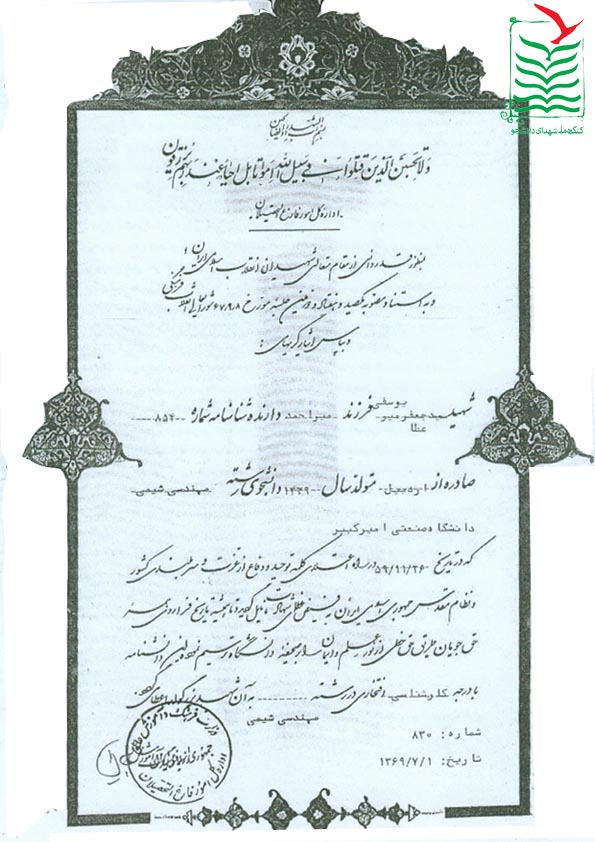 کنگره ملی شهدای دانشجو
بسم رب الشهداء و الصدیقین
ولا تحسبن الذین قتلوا فی سبیل الله امواتا بل احیاء عند ربهم یرزقون
اداره کل امور فارغ التحصیلان
بمنظور قدردانی از مقام متعالی شهیدان انقلاب اسلامی ایران
و به استناد مصوبه یکصد و هفتاد و دومین جلسه مورخ ۶۷/۹/۸ شورایعالی انقلاب فرهنگی
و بپاس ایثارگریهای :
شهید سیدجعفر میر یوسفی عطا فرزند میراحمد دارنده شناسنامه شماره ۸۵۴
صادره از اردبیل متولد سال ۱۳۳۹ دانشجوی رشته مهندسی شیمی
دانشگاه صنعتی امیرکبیر
که در تاریخ ۵۹/۱۱/۲۶ در راه اعتلای کلمه توحید و دفاع از عزت و سربلندی کشور
و نظام مقدس جمهوری اسلامی ایران به فیض عظمای شهادت نایل گردید تا همیشه تاریخ فرا روی
حق جویان طریق حق از نور علم و ایمان دانشگاه این دانشنامه
با درجه کارشناسی افتخاری در رشته مهندسی شیمی به آن شهید بزرگوار اعطا می گردد.
شماره : ۸۳۰
تاریخ : ۱۳۶۹/۷/۱
وزارت فرهنگ و آموزش عالی
جمهوری اسلامی ایران
اداره کل امور فارغ التحصیلان